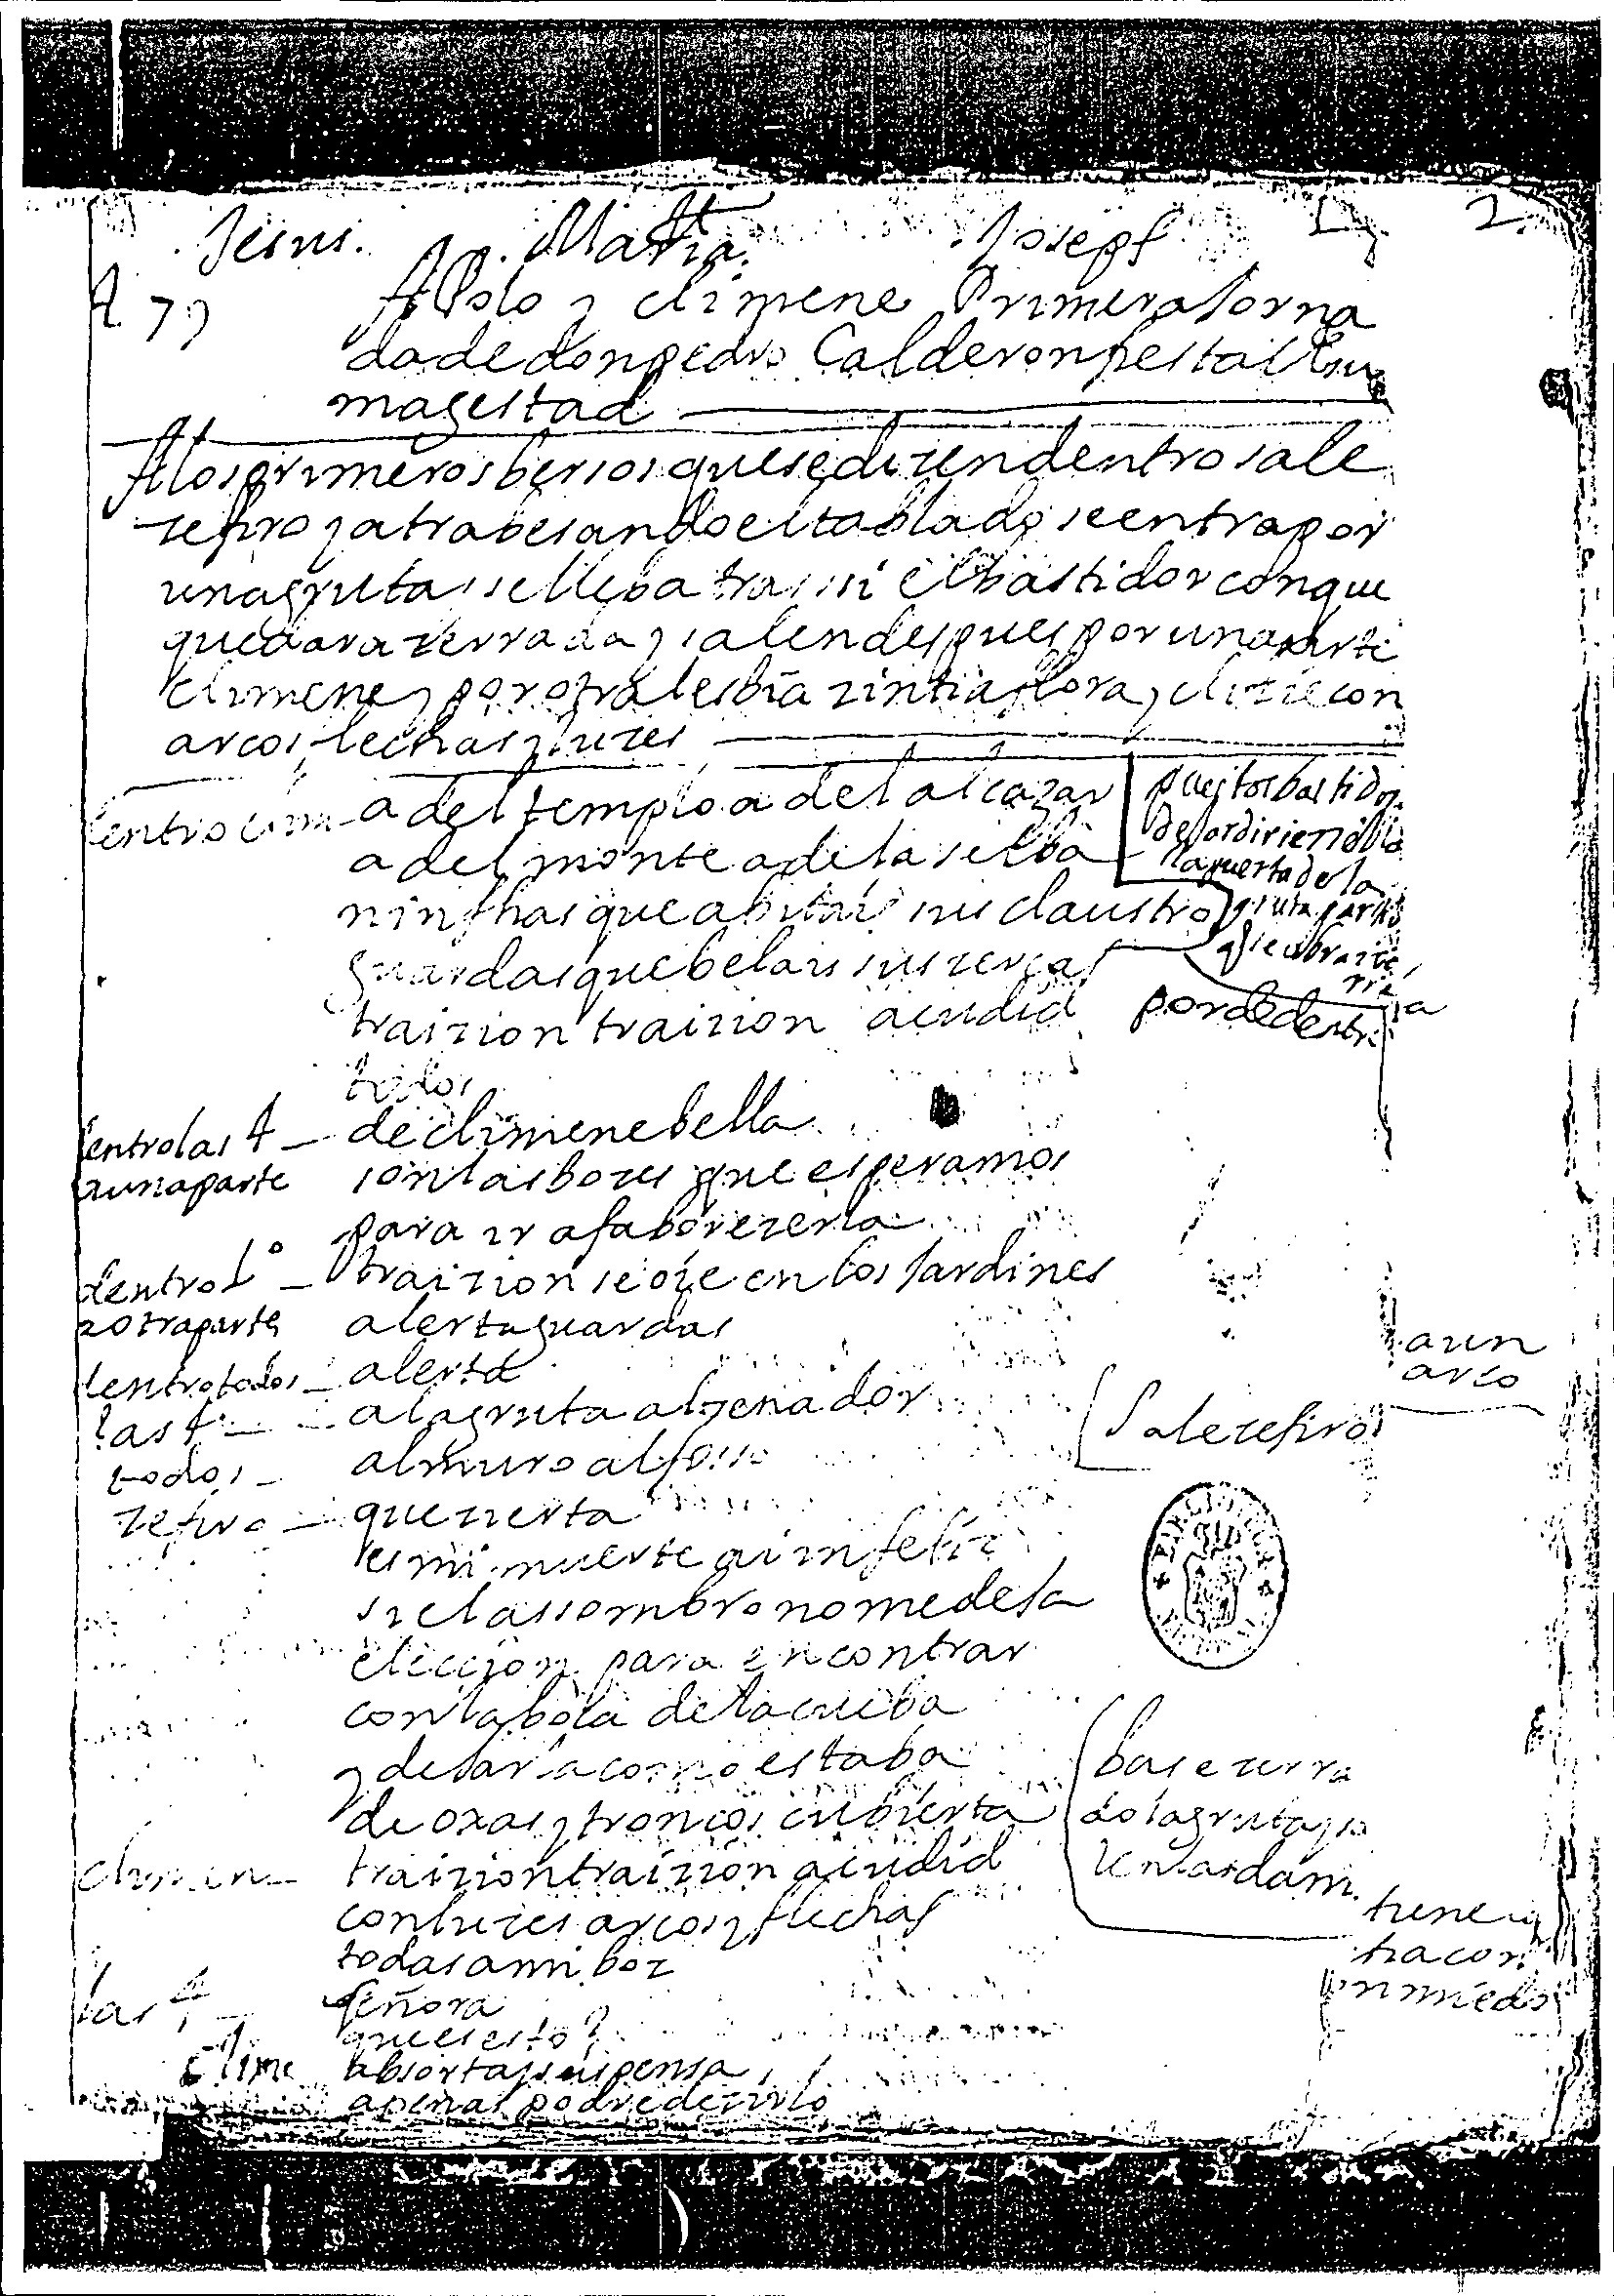 Jesus. Maria. Joseph
Apolo y climene Primera Jorna
da de don pedro Calderon fiesta de su
magestad
A los primeros bersos que se dizen dentro sale
zefiro y atrabesando el tablado se entra por
una gruta i se lleba tras si el bastidor con que
quedara zerrada y salen despues por una parte
climene y por otra lesbia zintia flora y clizie con
arcos flechas y luzes
dentro clim a del templo a del alcazar
a del monte a de la selba
puestos bastidor
la puerta de la
gruta
q se abra i zie
rre
por de dentro
ninfhas que abitais sus claustros
guardas que belais sus zercas
traizion traizion acudid
todos
dentro las 4 de climene bella
a una parte son las bozes que esperamos
para ir a faborezerla
dentro 1º traizion se oie en los Jardines
a otra parte alerta guardas
dentro todos alerta
las 4 a la gruta al zenador
todos al muro al foso
Sale zefiro
a un
arco
zefiro que zierta
es mi muerte ai infeliz
si el assombro no me deja
eleccion para encontrar
con la boca de la cueba
y dejarla como estaba
de oxas y troncos cubierta
base zerra
do la gruta y sa
len las dam.
climen traizion traizion acudid
con luzes arcos y flechas
todas a mi boz
las 4 señora
que es esto?
clime absorta y suspensa
apenas podre dezirlo